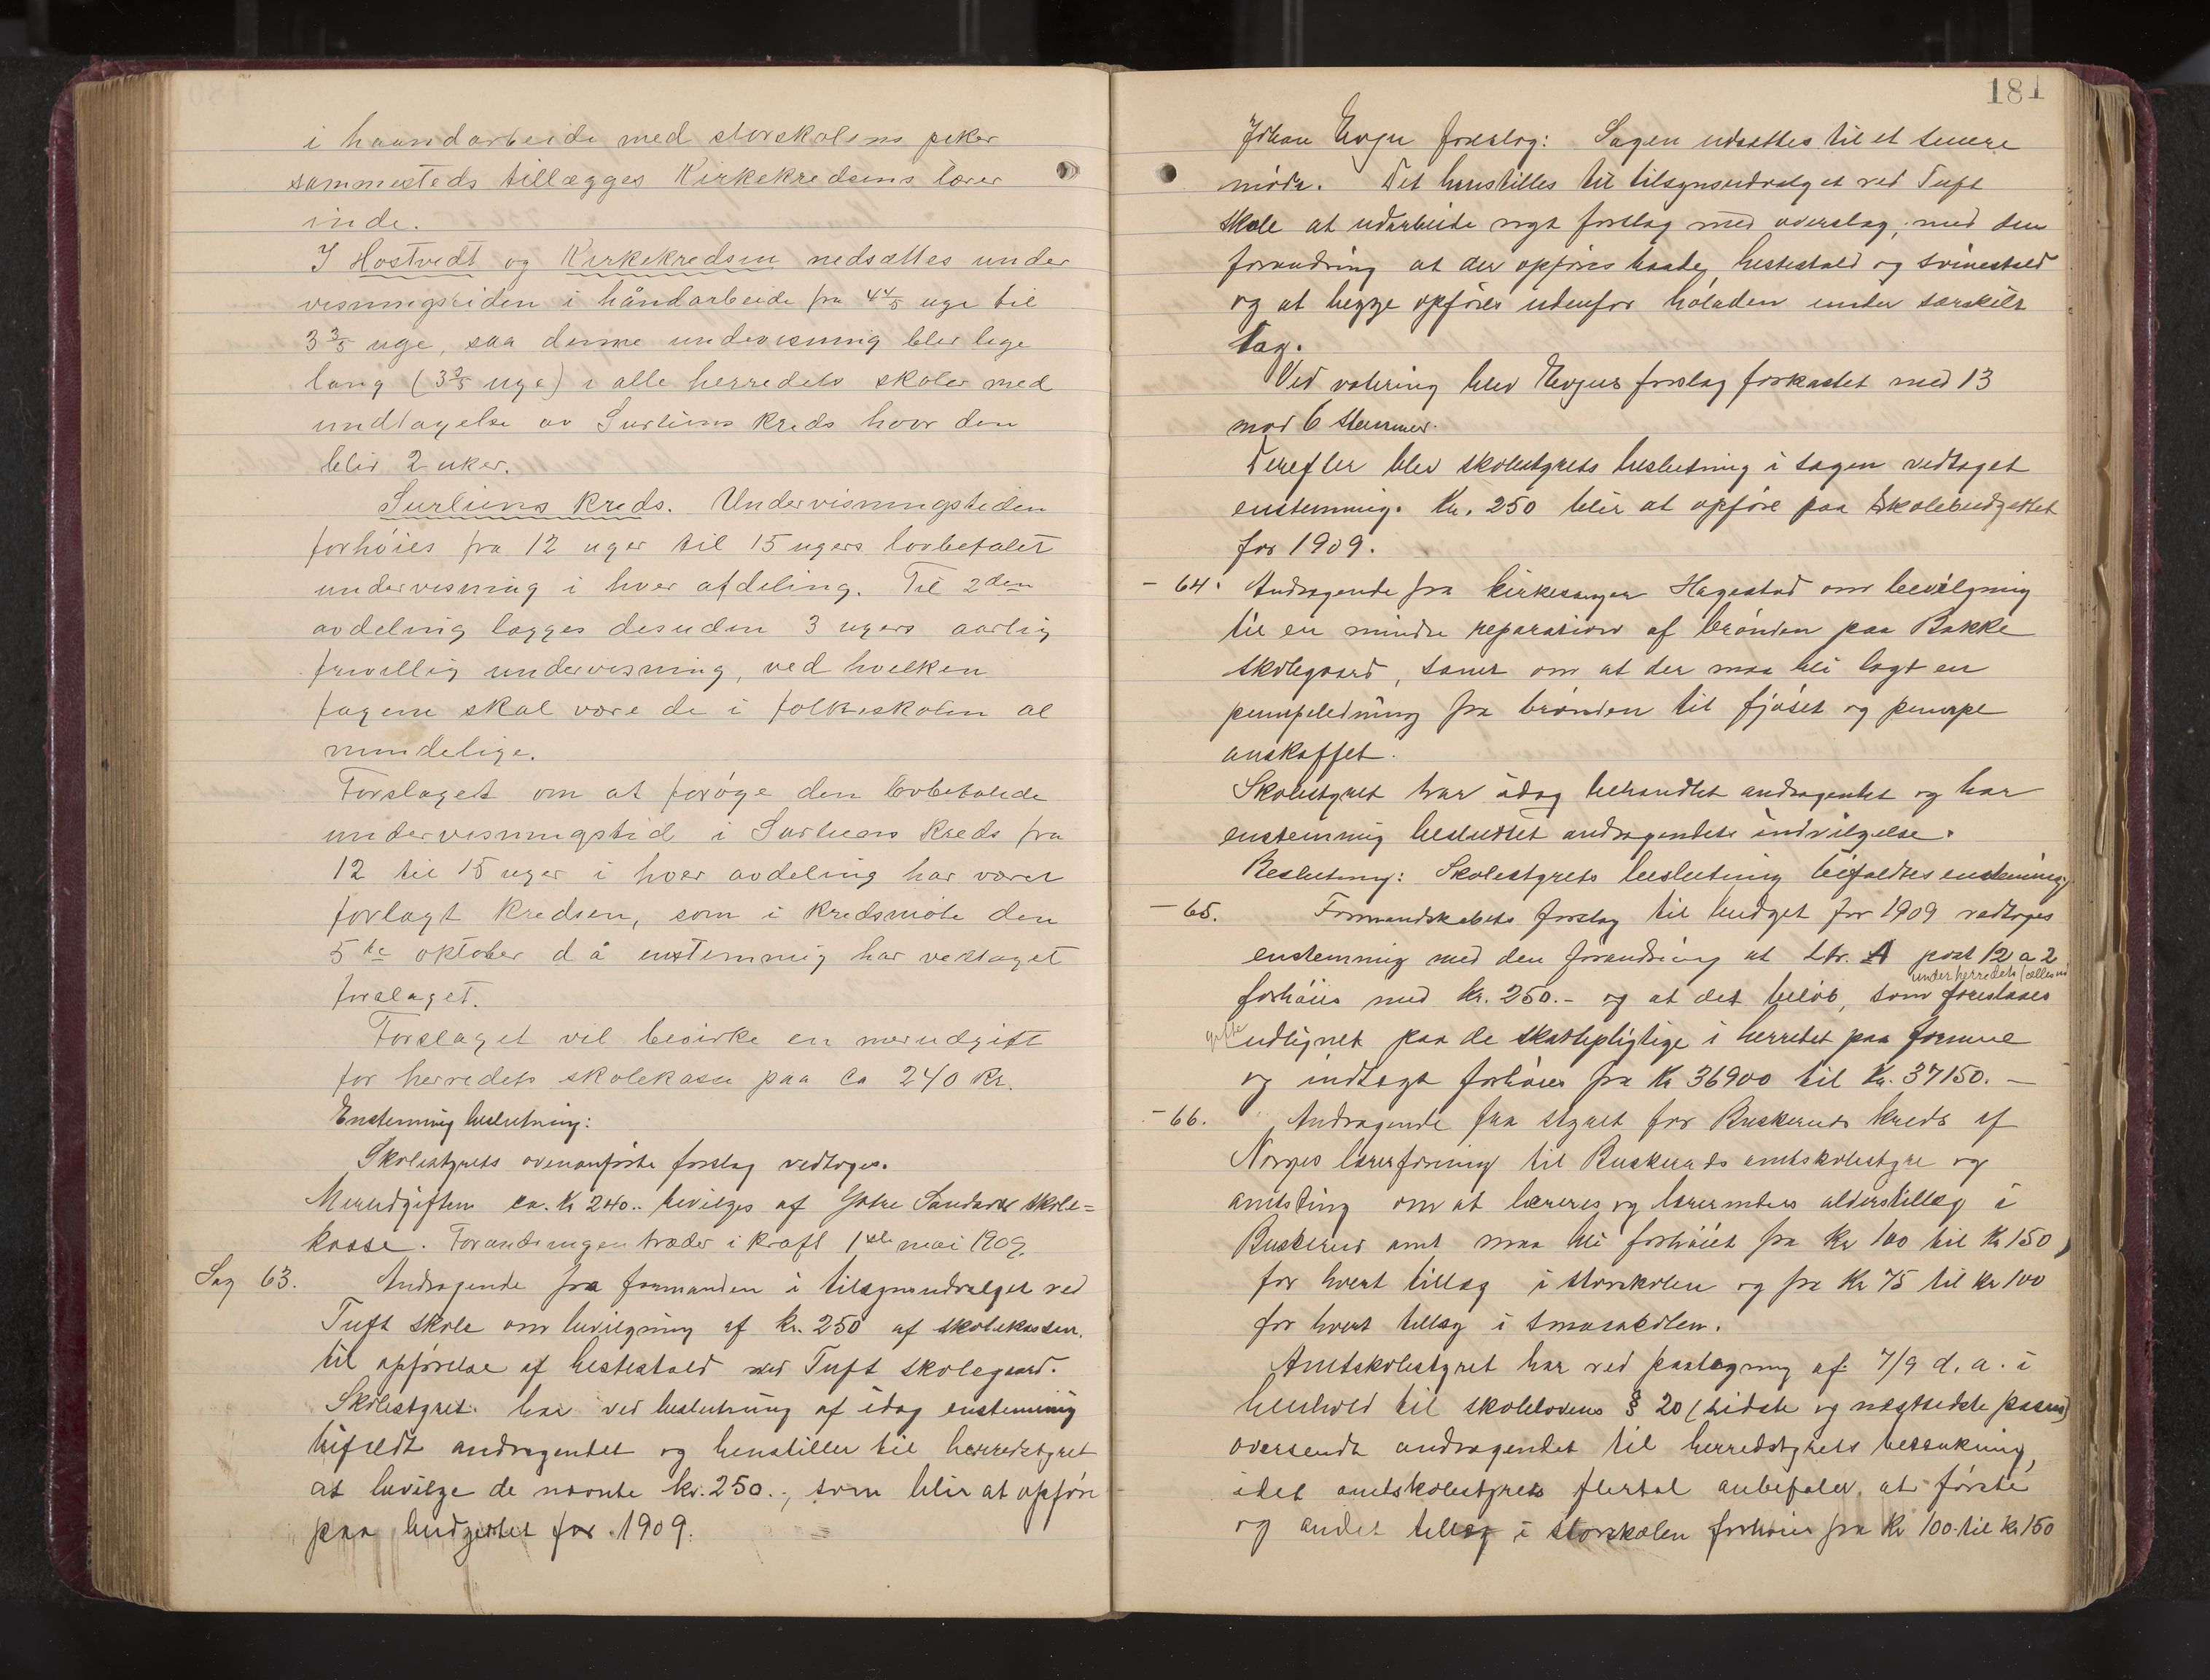 i haandarbeide med storskolens piker
sammesteds tillægges Kirkekredsens lærer
inde.
I Hostvedt og Kirkekredsen nedsættes under
visningstiden i håndarbeide fra 4 4/5 uge til
3 3/5 uge, saa denne undervisning blir lige
lang (3 3/5 uge) i alle herredets skoler med
undtagelse av Surliens Kreds hvor den
blir 2 uker.
Surliens Kreds. Undervisningstiden
forhöies fra 12 uger til 15 ugers lovbefalet
undervisning i hver afdeling. Til 2den
avdeling lægges desuden 3 ugers aarlig
frivillig undervisning, ved hvilken
fagene skal være de i folkeskolen al
mindelige.
Forslaget om at foröge den lovbefalede
undervisningstid i Surliens Kreds fra
12 til 15 uger i hver avdeling har været
forlagt Kredsen, som i Kredsmöte den
5te oktober d å enstemmig har vedtaget
forslaget.
Forslaget vil bevirke en merudgift
for herredets skolekasse paa ca 240 Kr.
Enstemmig beslutning:
Skolestyrets ovenanförte forslag vedtoges.
Merudgiften ca. Kr 240.. bevilges af Ytre Sandsvær skole=
kasse. Forandringen træder i kraft 1ste mai 1909.
Sag 63. Andragende fra formanden i tilsynsudvalget ved
Tuft skole om bevilgning af kr. 250 af skolekassen.
til opförelse af hestestald ved Tuft skolegaard.
Skolestyret har ved beslutning af idag enstemmig
bifaldt andragendet og henstiller til herredstyret
at bevilge de nævnte kr. 250.-, som blir at opföre
paa budgettet for 1909.
181
Johan Evju foreslog: Sagen udsættes til et senere
möde. Det henstilles til tilsynsudvalget ved Tuft
skole at udarbeide nyt forslag med overslag, med den
forandring at der opföres baade hestestald og svinestald
og at begge opföres udenfor höladen under særskilt
tag.
Ved votering blev Evjus forslag forkastet med 13
mod 6 stemmer.
Derefter blev skolestyrets beslutning i sagen vedtaget
enstemmig. Kr. 250 blir at opföre paa skolebudgettet
for 1909.
- 64. Andragende fra kirkesanger Hagestad om bevilgning
til en mindre reparation af brönden paa Bakke
skolegaard, samt om at der maa bli lagt en
pumpeledning fra brönden til fjöset og pumpe
anskaffet.
Skolestyret har idag behandlet andragendet og har
enstemmig besluttet andragendets indvilgelse.
Beslutning: Skolestyrets beslutning bifaldtes enstemmig.
- 65. Formandskabets forslag til budget for 1909 vedtoges
enstemmig med den forandring at Ltr. A post 12 a 2
forhöies med Kr. 250.- og at det belöb, som foreslaaes
udlignet paa de skattepligtige i herredet paa formue
og indtægt forhöies fra Kr 36900 til Kr. 37150. —
- 66. Andragende fra styret for Buskeruds kreds af
Norges lærerforening til Buskeruds amtskolestyre og
amtsting om at læreres og lærerinders alderstillæg i
Buskerud amt maa bli forhöiet fra Kr 100 til Kr 150,
for hvert tillæg i storskolen og fra Kr 75 til Kr 100
for hvert tillæg i smaaskolen.
Amtskolestyret har ved paategning af 7/9 d. a. i
henhold til skolelovens § 20 (sidste og næstsidste passus)
oversendt andragendet til herredstyrets betænkning,
idet amtskolestyrets flertal anbefaler, at förste
og andet tillæg i storskolen forhöies fra Kr 100 til Kr 150